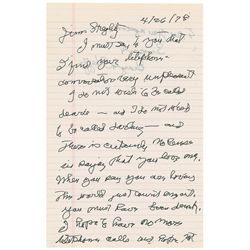 4/26/78
I must say to you that
I find your telephone
conversation very unpleasant
I do not wish to be called
dearie — and I do not wish
to be called darling — and
There is certainly no sense
in saying that you love me.
When you say you are loving
the world just doesn't
you must have been drunk.
I hope to have no more
telephone calls and hope